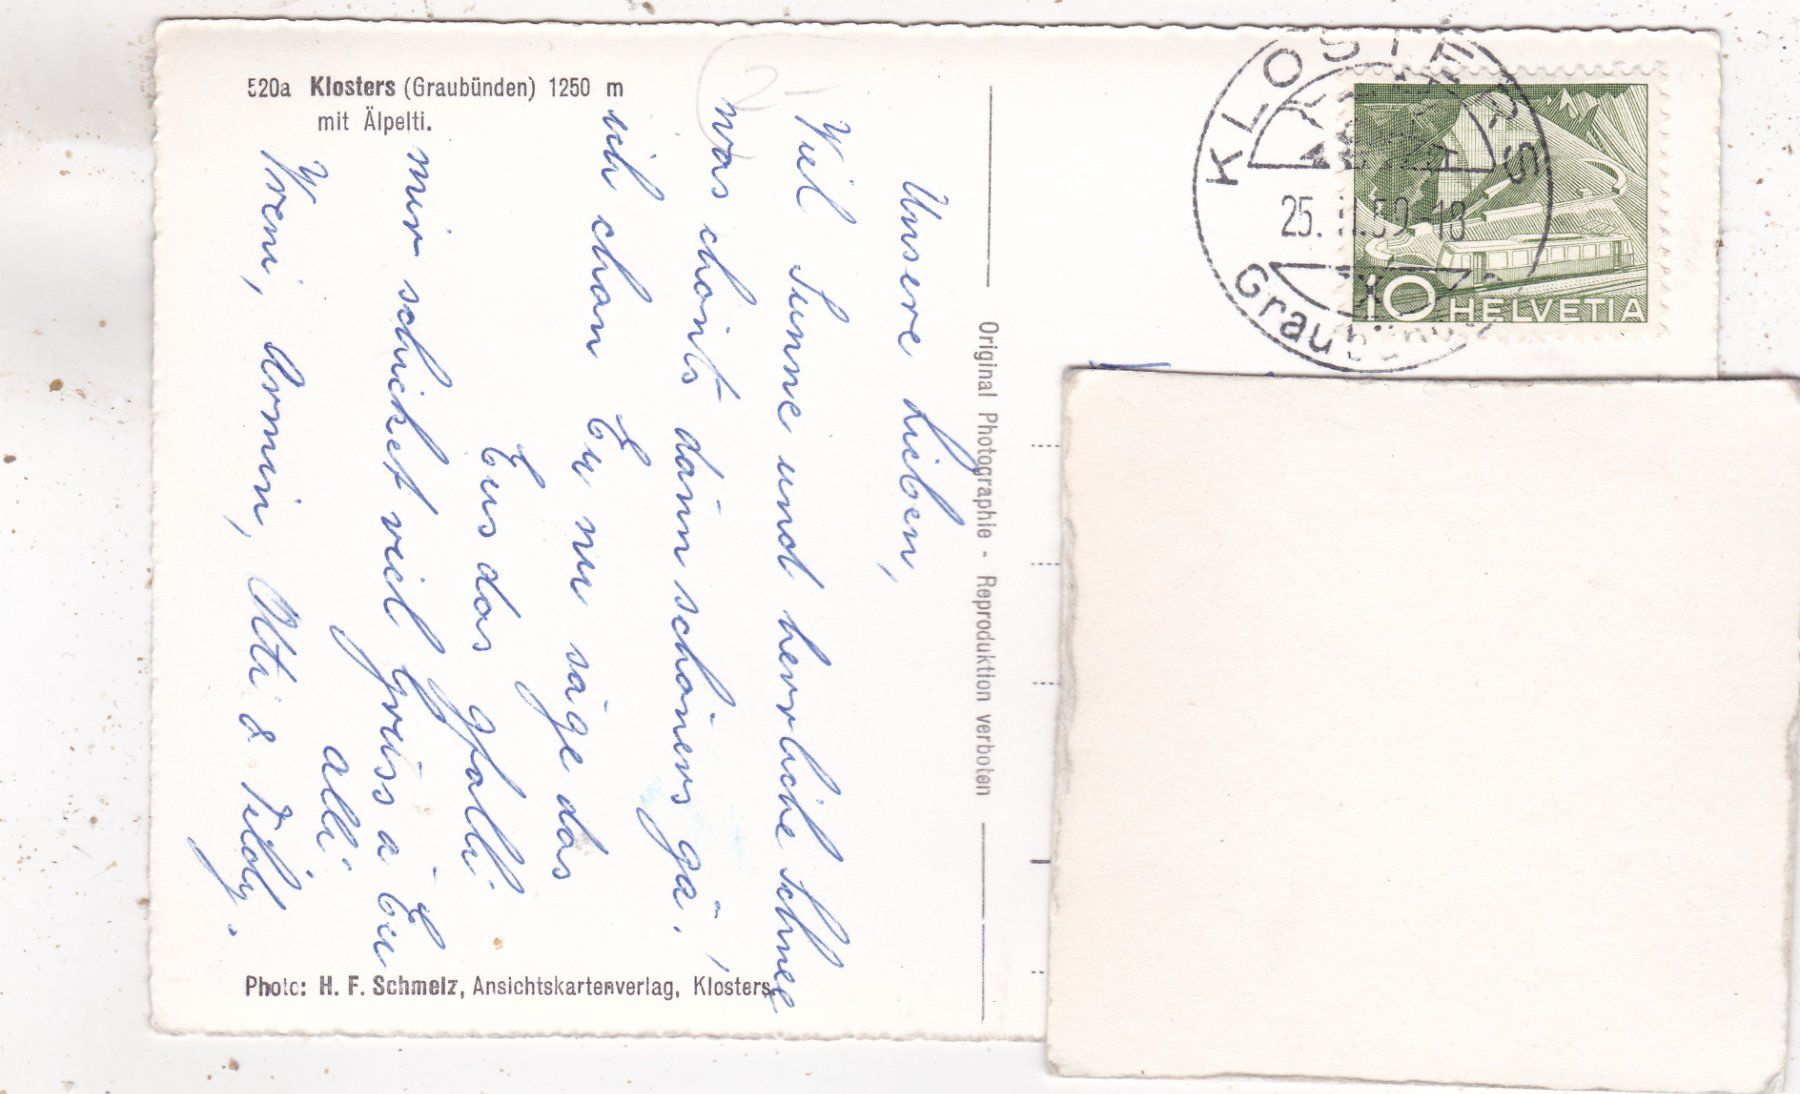 520a Klosters (Graubünden) 1250 m
mit Älpelti.
Unsere Lieben,
Viel Sunne und herrliche Schnee
was chönts dänn schöners gä,
ich chan Ey nu säge das
Eus das gfallt
mir schicket viel Grüss a Eu
alli
Vreni, Armin, Otti &
Original Photographie - Reproduktion verboten
Photo: H. F. Schmelz, Ansichtskartenverlag, Klosters
KLOSTERS
25. 59-18
Graubünden
10 HELVETIA